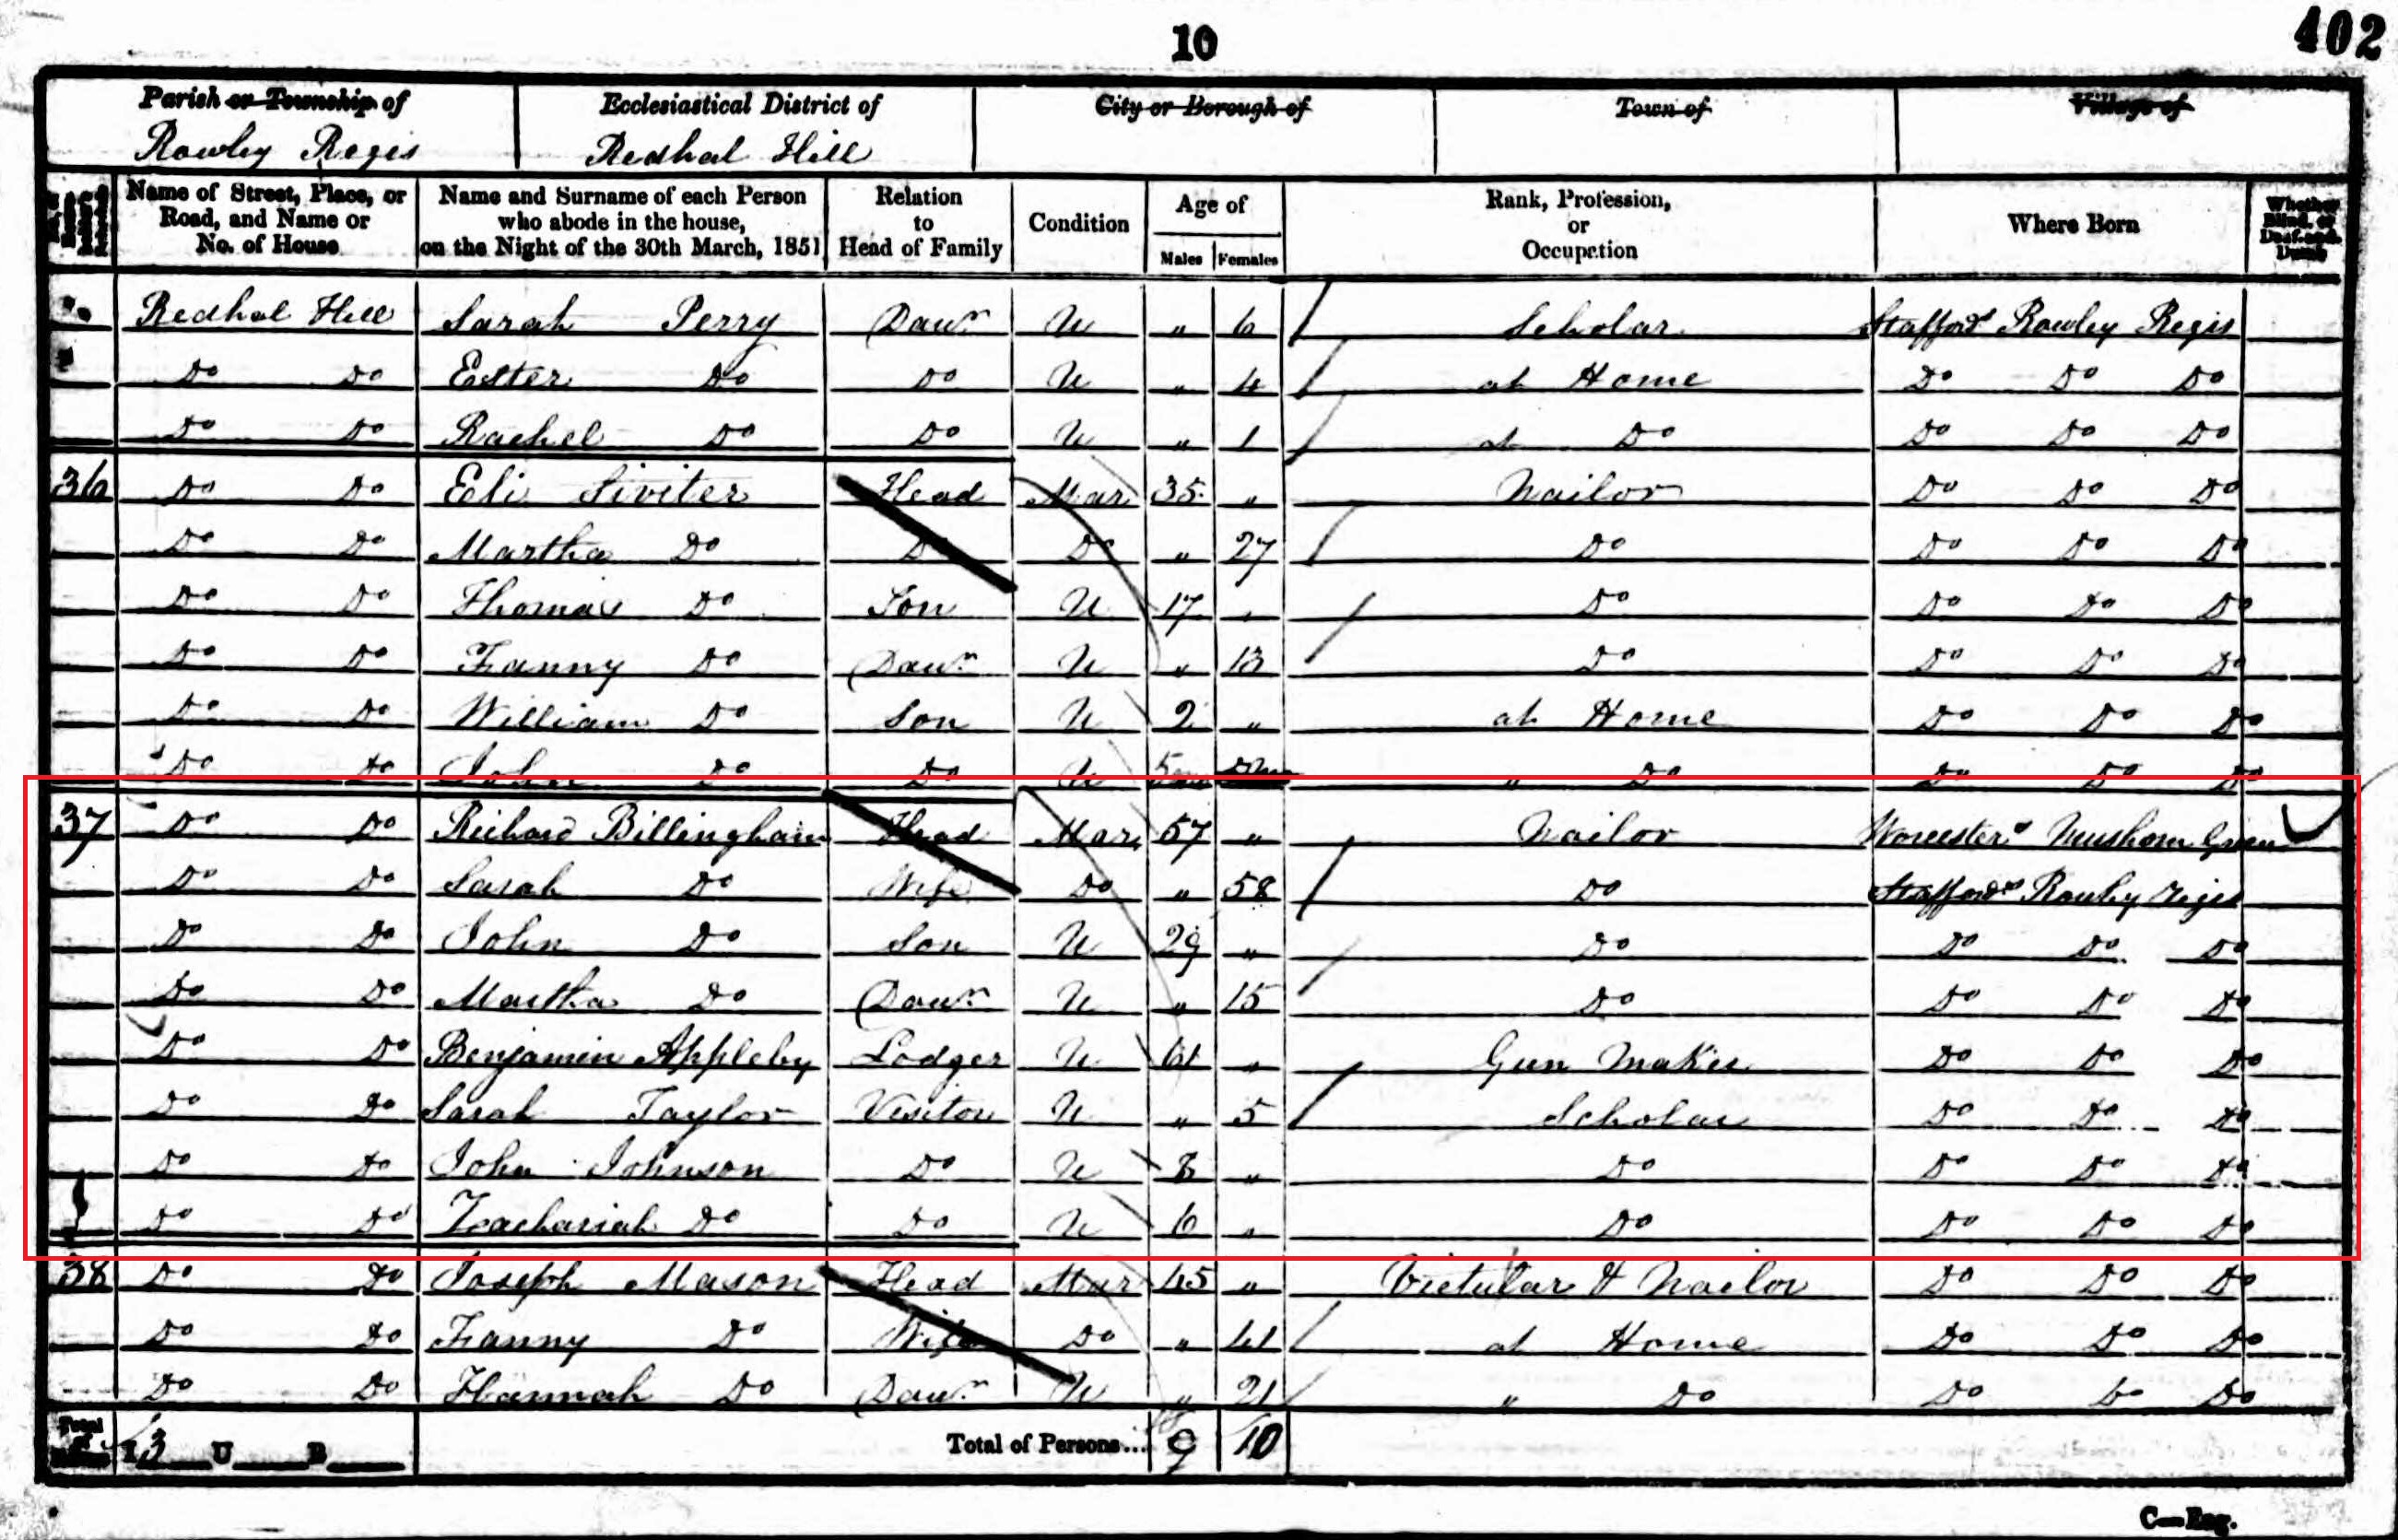 10
402
Parish or Township of
Rowley Regis
Ecclesiastical District of
Redhal Hill
City or Borough of
Town of
Village of
Name of Street, Place, or Road, and Name or No. of House
Name and Surname of each Person who abode in the house, on the Night of the 30th March, 1851
Relation to Head of Family
Condition
Age of
Males Females
Rank, Profession, or Occupation
Where Born
Whether Blind, or Deaf-and-Dumb
Redhal Hill Sarah Perry Daur U " 6 Scholar Staffords Rowley Regis
Do Do Ester Do Do U " 4 at Home Do Do Do
Do Do Rachel Do Do U " 1 at Do Do Do Do
36 Do Do Eli Siviter Head Mar 35 " Nailor Do Do Do
Do Do Martha Do Do Do " 27 Do Do Do Do
Do Do Thomas Do Son U 17 " Do Do Do Do
Do Do Fanny Do Daur U " 13 Do Do Do Do
Do Do William Do Son U 2 " at Home Do Do Do
Do Do John Do Do U 5 " Do Do Do Do
37 Do Do Richard Billingham Head Mar 57 " Nailor Worcester Mushom Green
Do Do Sarah Do Wife Do " 58 Do Staffords Rowley Regis
Do Do John Do Son U 29 " Do Do Do Do
Do Do Martha Do Daur U " 15 Do Do Do Do
Do Do Benjamin Appleby Lodger U 61 " Gun Maker Do Do Do
Do Do Sarah Taylor Visitor U " 5 Scholar Do Do Do
Do Do John Johnson Do U 8 " Do Do Do Do
Do Do Zachariah Do Do U 6 " Do Do Do Do
38 Do Do Joseph Mason Head Mar 45 " Victular & Nailor Do Do Do
Do Do Fanny Do Wife Do " 41 at Home Do Do Do
Do Do Hannah Do Daur U " 21 " Do Do Do Do
Total of Houses I 3 U B Total of Persons... 9 10
C—Eng.